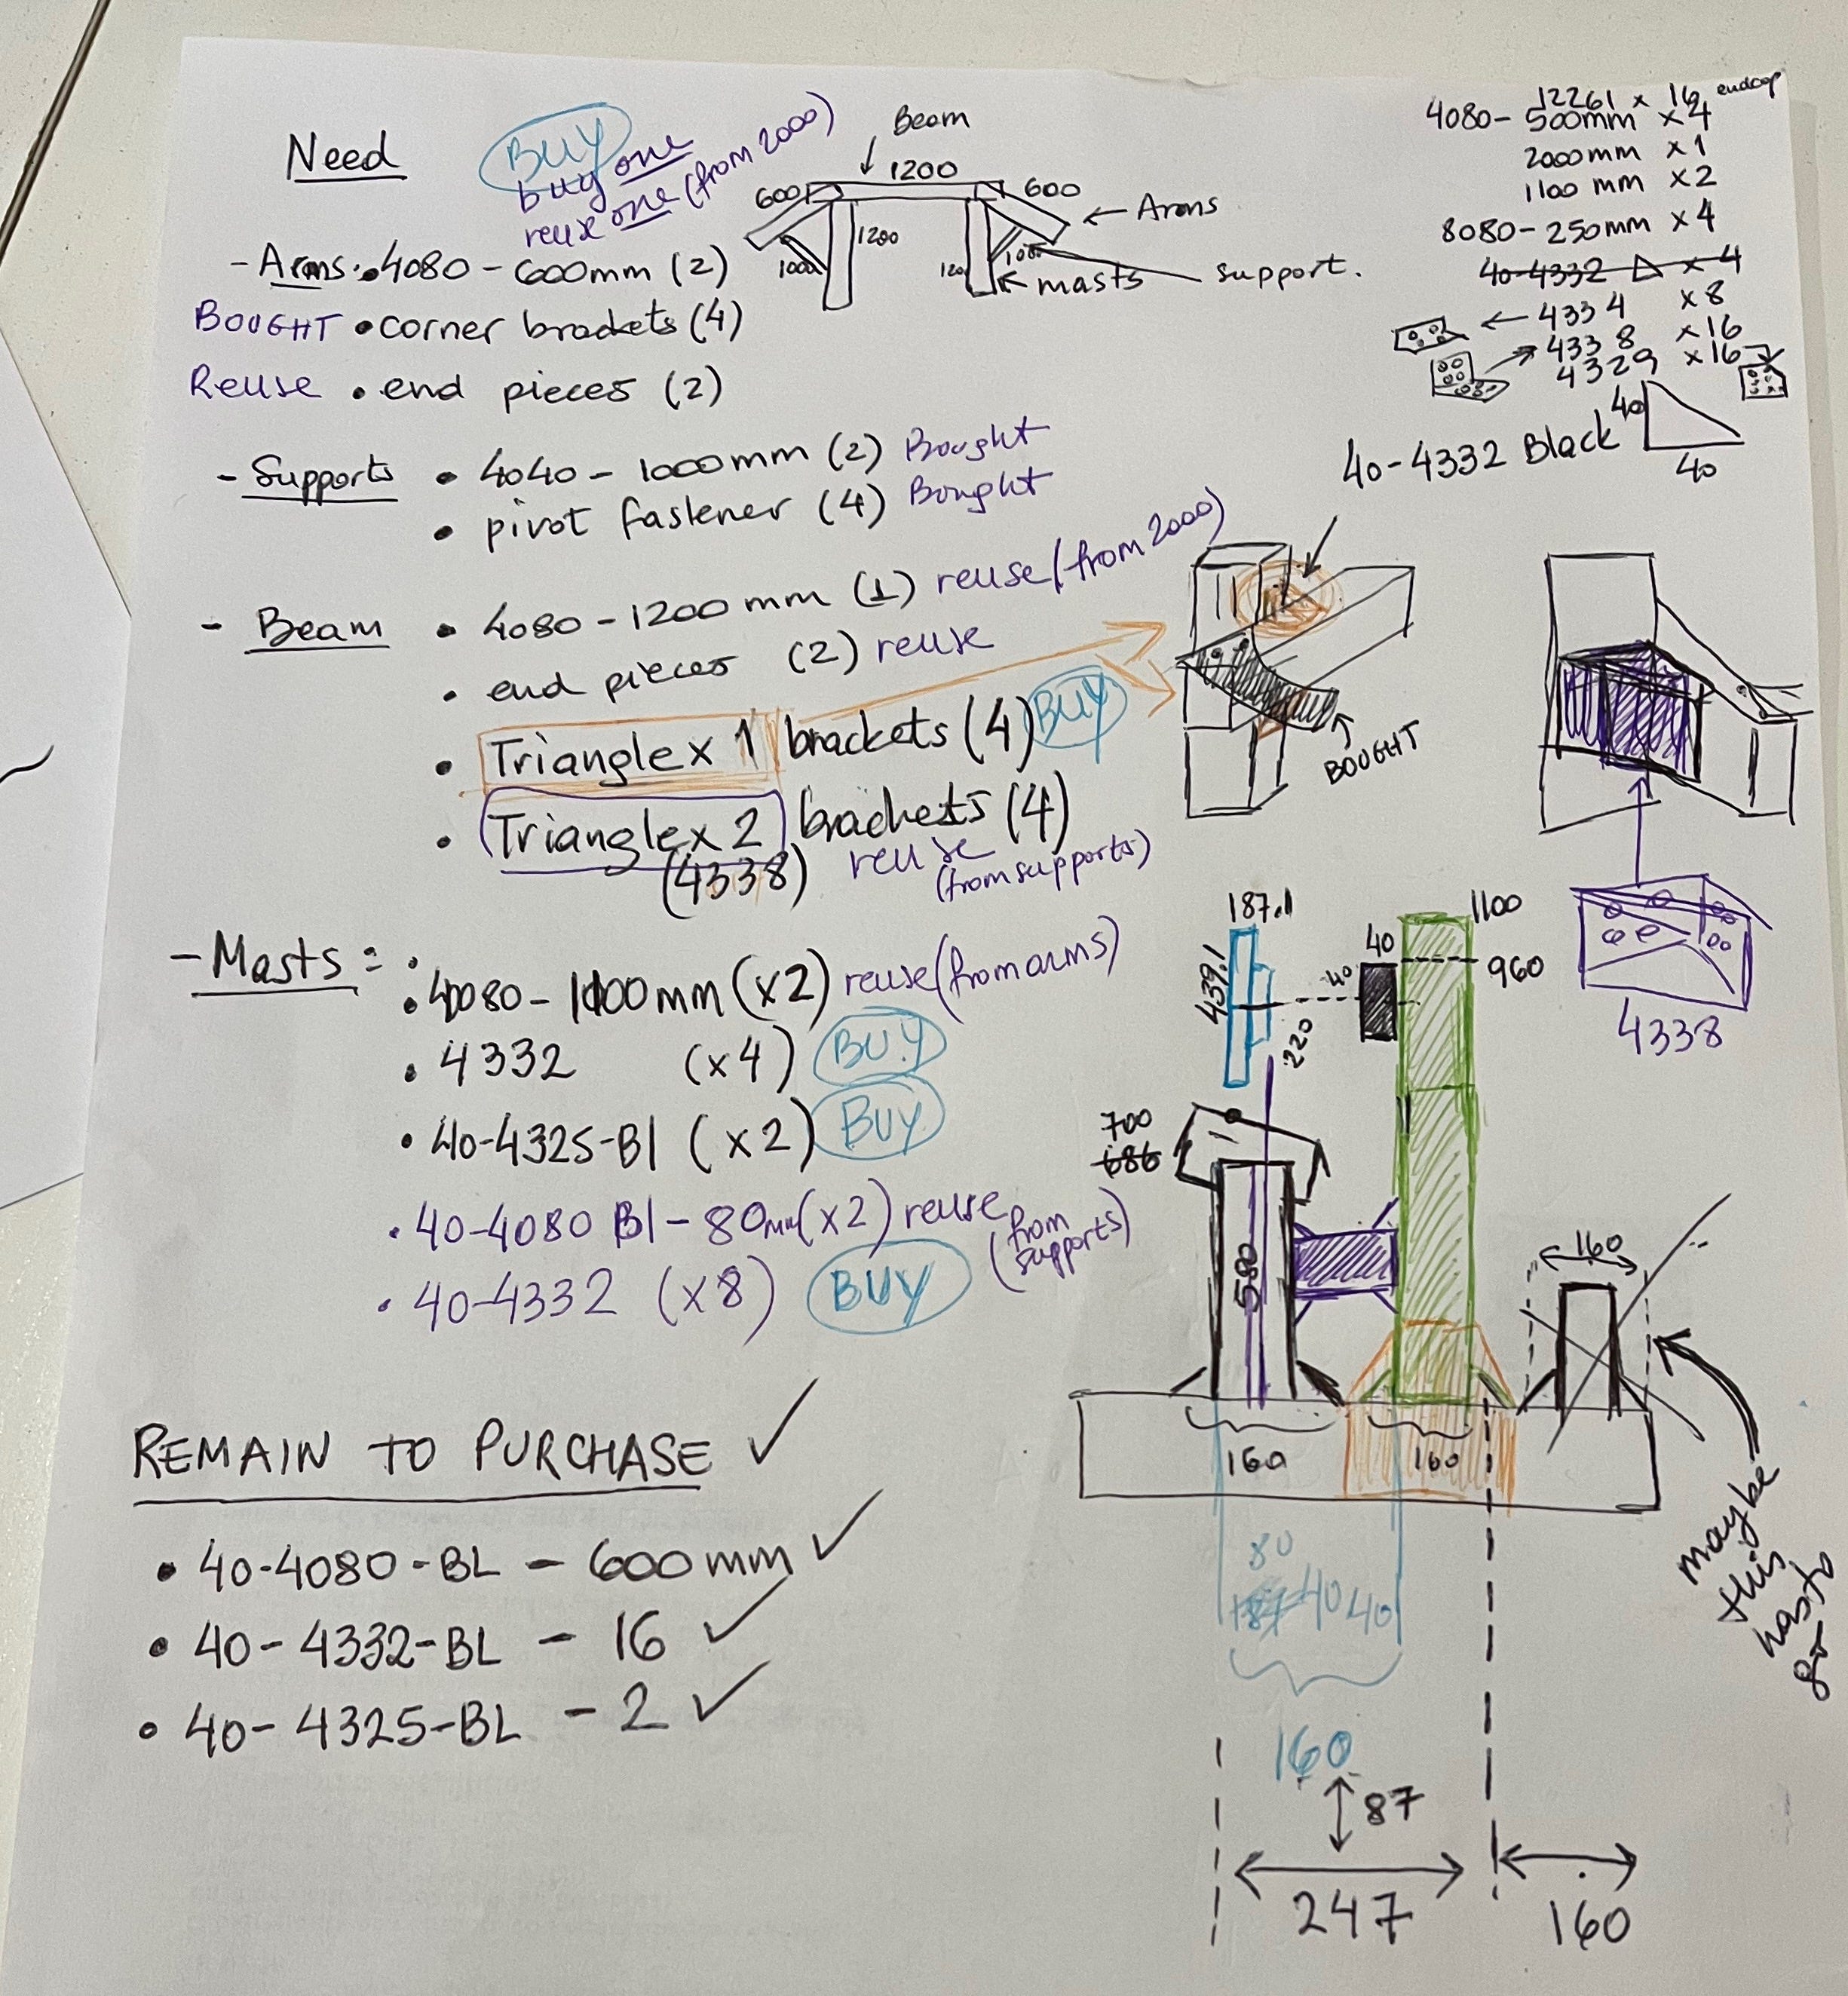 Need
BUY
buy one
reuse one (from 2000)
- Arms: 4080 - 600mm (2)
BOUGHT • corner brackets (4)
Reuse • end pieces (2)
Beam
1200
600
600
Arms
1200
1000
120
100
masts
support.
12261 x 16 endcap
4080 - 500mm x 4
2000mm x 1
1100 mm x 2
8080 - 250mm x 4
40-4332 x 4
4334 x 8
4338 x 16
4329 x 16
40-4332 Black
40
40
- Supports • 4040 - 1000mm (2) Bought
• pivot fastener (4) Bought
- Beam • 4080 - 1200mm (1) reuse (from 2000)
• end pieces (2) reuse
• Triangle x 1 brackets (4) BUY
• Triangle x 2 brackets (4)
(4338) reuse
(from supports)
BOUGHT
4338
- Masts =
• 4080 - 1100mm (x2) reuse (from arms)
• 4332 (x4) BUY
• 40-4325-Bl (x2) BUY
• 40-4080 Bl - 80mm (x2) reuse (from supports)
• 40-4332 (x8) BUY
187.1
439.1
40
40
220
1100
960
700
686
580
160
160
160
maybe
this
has to
80
80
187 40 40
160
87
247
160
REMAIN TO PURCHASE ✓
• 40-4080-BL - 600mm ✓
• 40-4332-BL - 16 ✓
• 40-4325-BL - 2 ✓